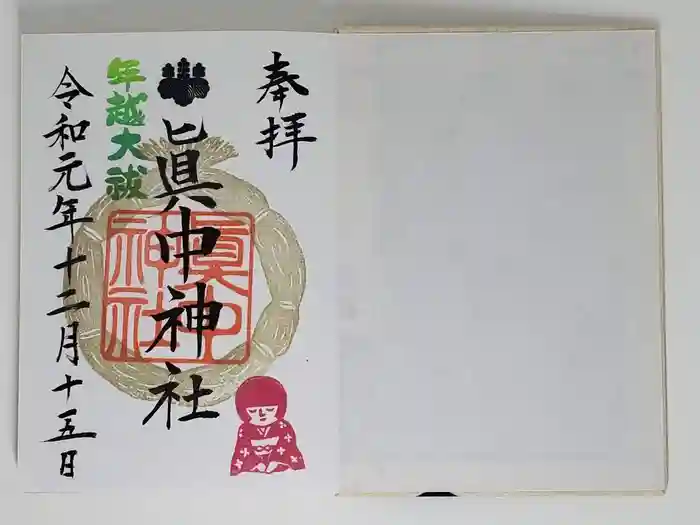 奉拝
眞中神社
年越大祓
令和元年十二月十五日
眞中
神社